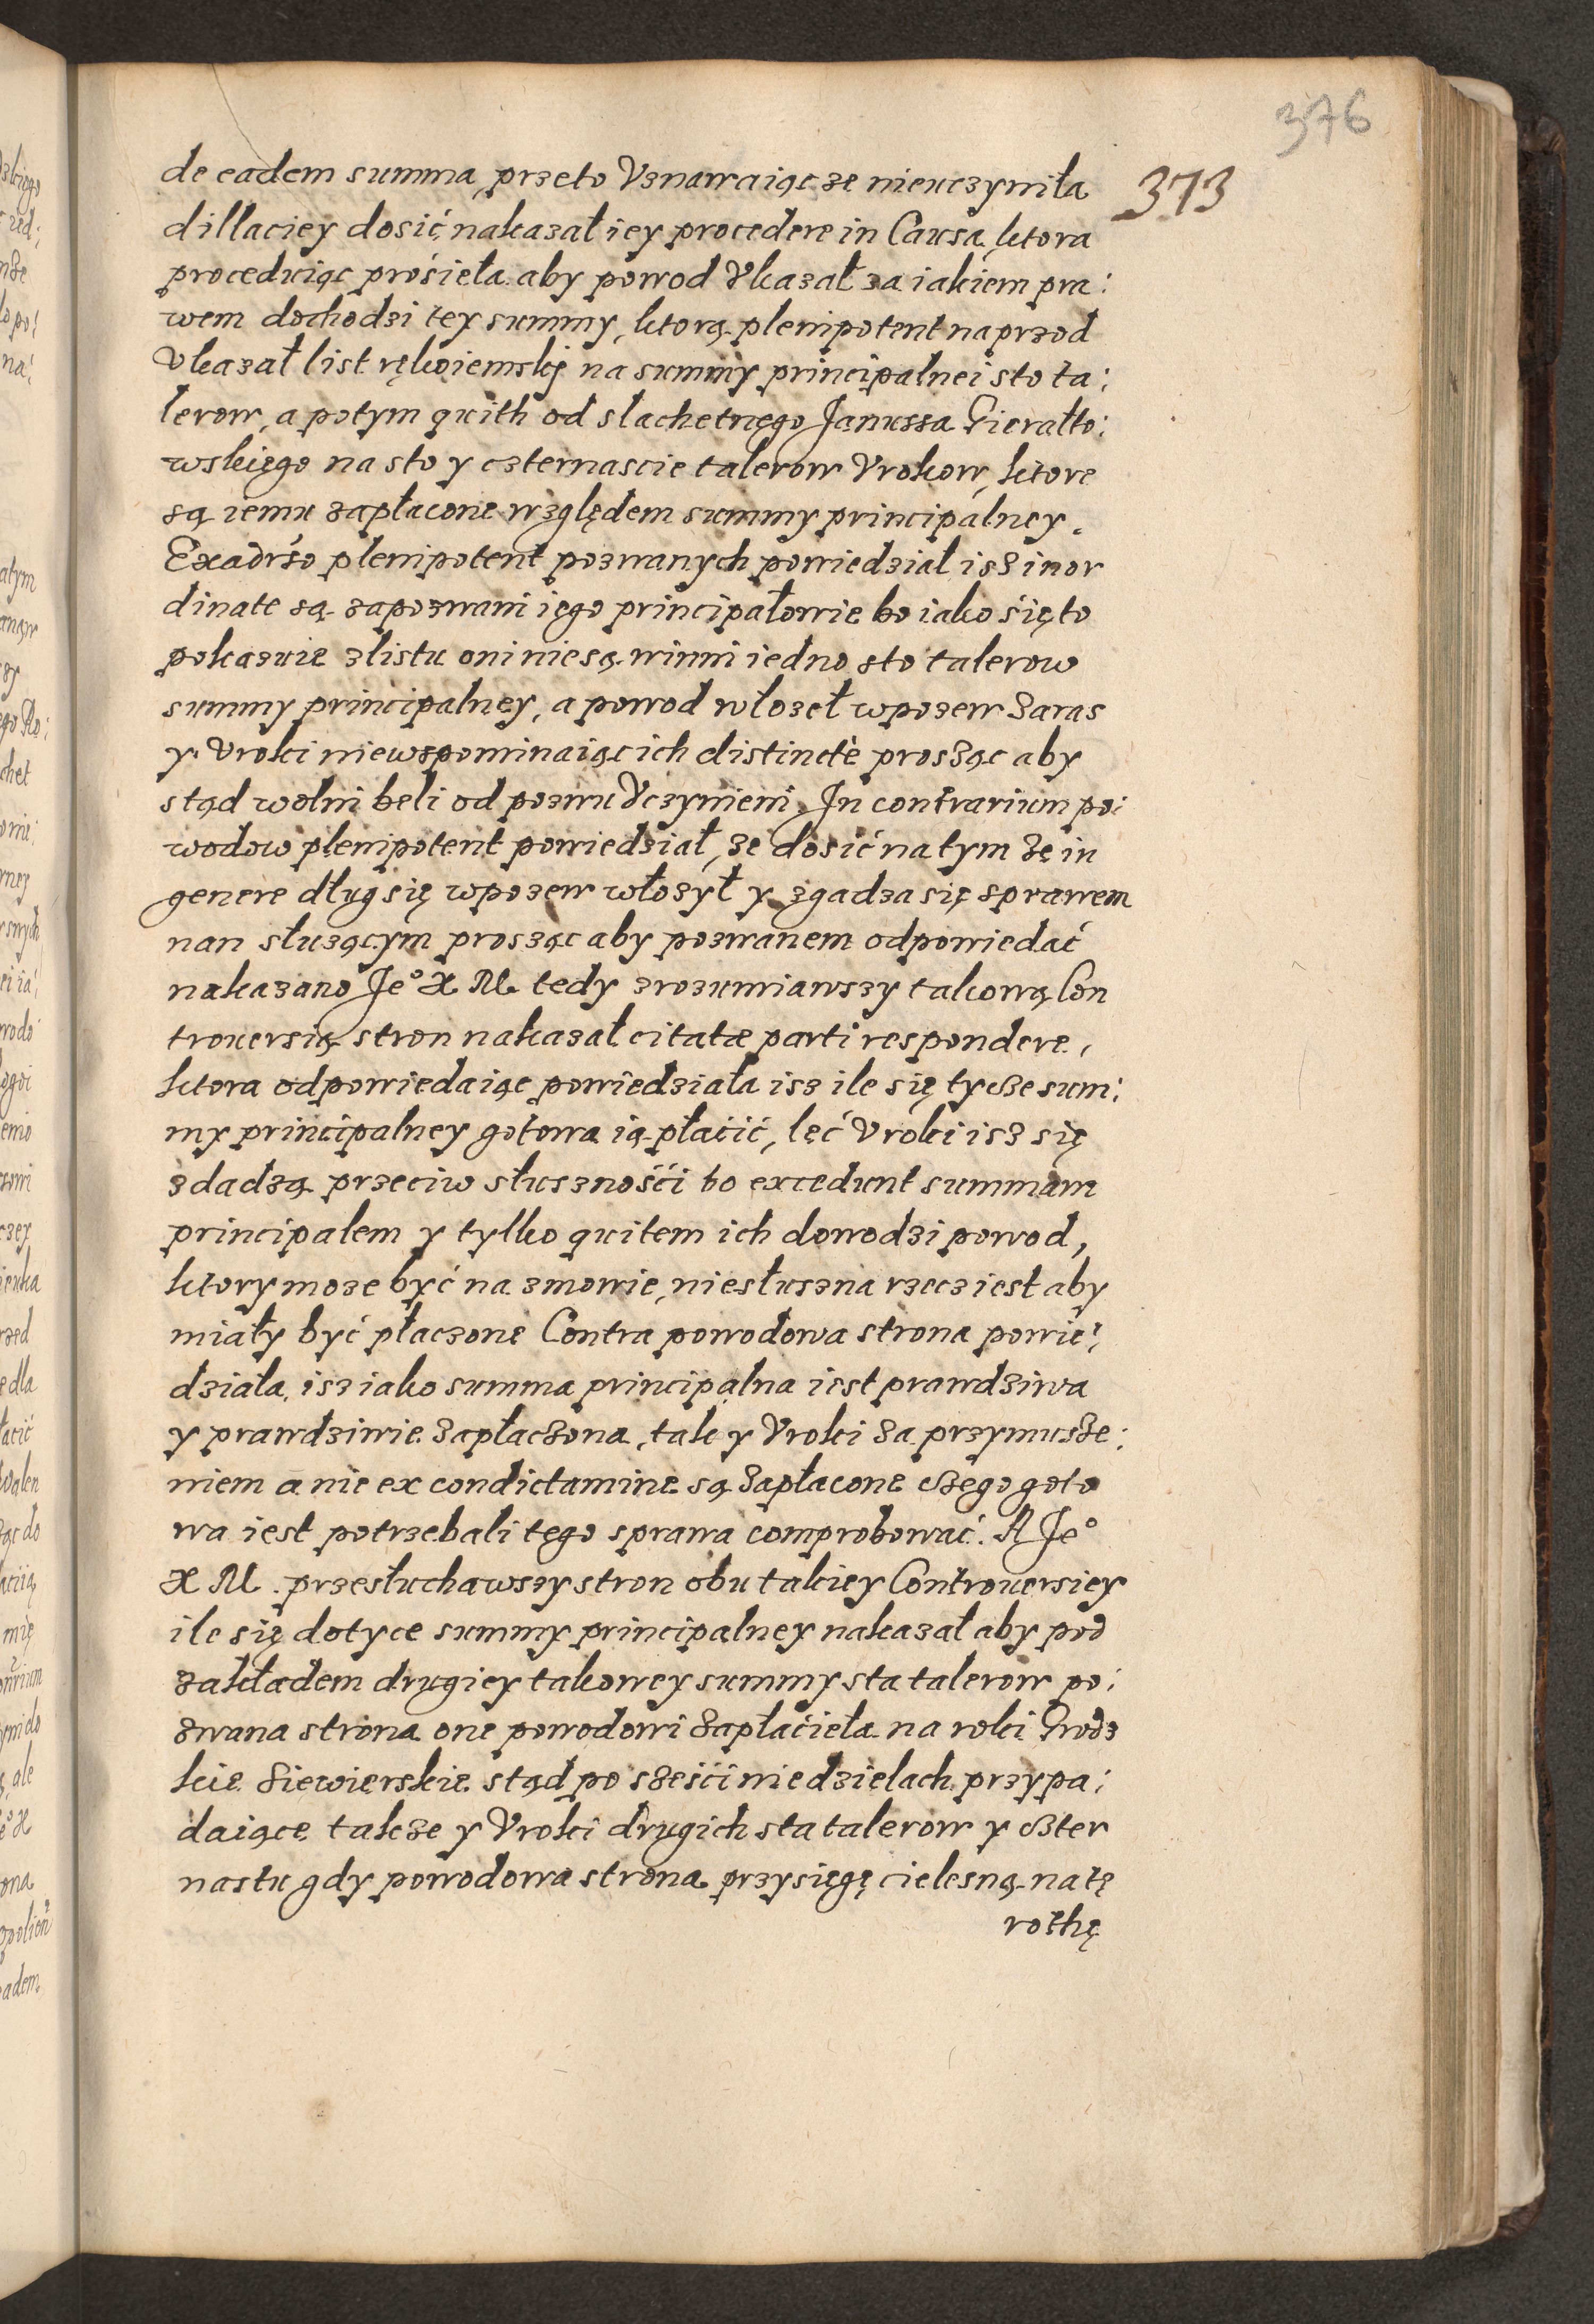 376
373
de eadem summa, przeto Vznawaiąc ze nieuczyniła
dillaciey dosić, nakazał iey procedere in Causa, ktora
proceduiąc prosieła aby powod Vkazał za iakiem pra:
wem dochodzi tey summy, ktorą plenipotent naprzod
Vkazał list rękoiemskj na summy principalnei sto ta:
lerow, a potym quith od slachetnęgo Janussa Gieralto:
wskięgo na sto y czternascie talerow Vrokow, ktore
są iemu zapłacone względem summy principalney.
Exadrso plenipotent pozwanych powiedzial isz inor
dinate są zapozwani ięgo principałowie bo iako się to
pokazuie zlistu oni niesą winni iedno sto talerow
summy principalney, a powod włozeł wpozew zaras
y Vroki niewspominaiąc ich distinctè prosząc aby
stąd wolni beli od pozwu Vczynieni. In contrarium po:
wodow plenipotent powiedział, ze dosić na tym zę in
genere dług się wpozew włozył y zgadza się sprawem
nan słuzącym prosząc aby pozwanem odpowiedać
nakazano Je° X M tedy zrozumiawszy takową Con
trouersią stron nakazał citatæ parti respondere,
ktora odpowiedaiąc powiedziała isz ile się tycze sum:
my principalney gotowa ią płacić, lęć Vroki isz się
zdadzą przeciw słusznośći bo excedunt summam
principalem y tylko quitem ich dowodzi powod,
ktory moze być na zmowie, niesłuszna rzecz iest aby
miały być płaczone Contra powodowa strona powie:
dziala, isz iako summa principalna iest prawdziwa
y prawdziwie zapłaczona, tak y Vroki za przymusze:
niem a nie ex condictamine są zapłacone czego goto
wa iest potrzebali tęgo sprawa comprobować. A Je°
X M. przesłuchawszy stron obu takiey Controuersiey
ile się dotyce summy principalney nakazał aby pod
zakładem drugiey takowey summy sta talerow po:
zwana strona one powodowi zapłacieła na roki Grodz
kie Siewierskie stąd po sześci niedzielach przypa:
daiące takze y Vroki drugich sta talerow y czter
nastu gdy powodowa strona przysięgę cielesną na tę
rothę